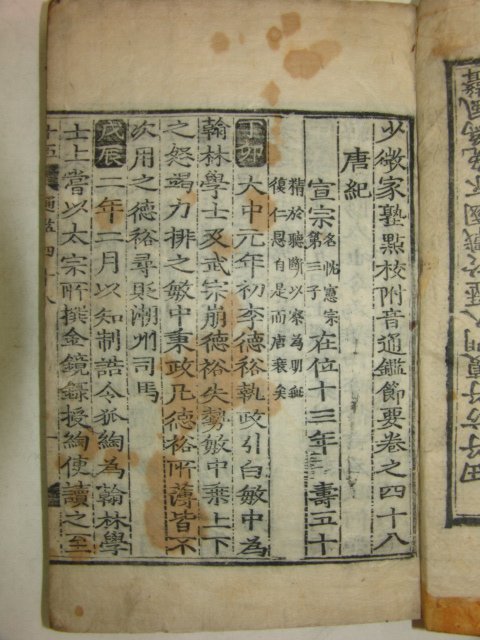 少微家塾點校附音通鑑節要卷之四十八
唐紀
宣宗 名忱憲宗第三子 在位十三年 壽五十
精於聽斷以察爲明無復仁恩自是而唐衰矣
丁卯 大中元年初李德裕執政引白敏中為
翰林學士及武宗崩德裕失勢敏中乘上下
之怨竭力排之敏中秉政凡德裕所薄皆不
次用之德裕尋貶潮州司馬
戊辰 二年二月以知制誥令狐綯為翰林學
士上嘗以太宗所撰金鏡錄授綯使讀之至
通鑑四十八